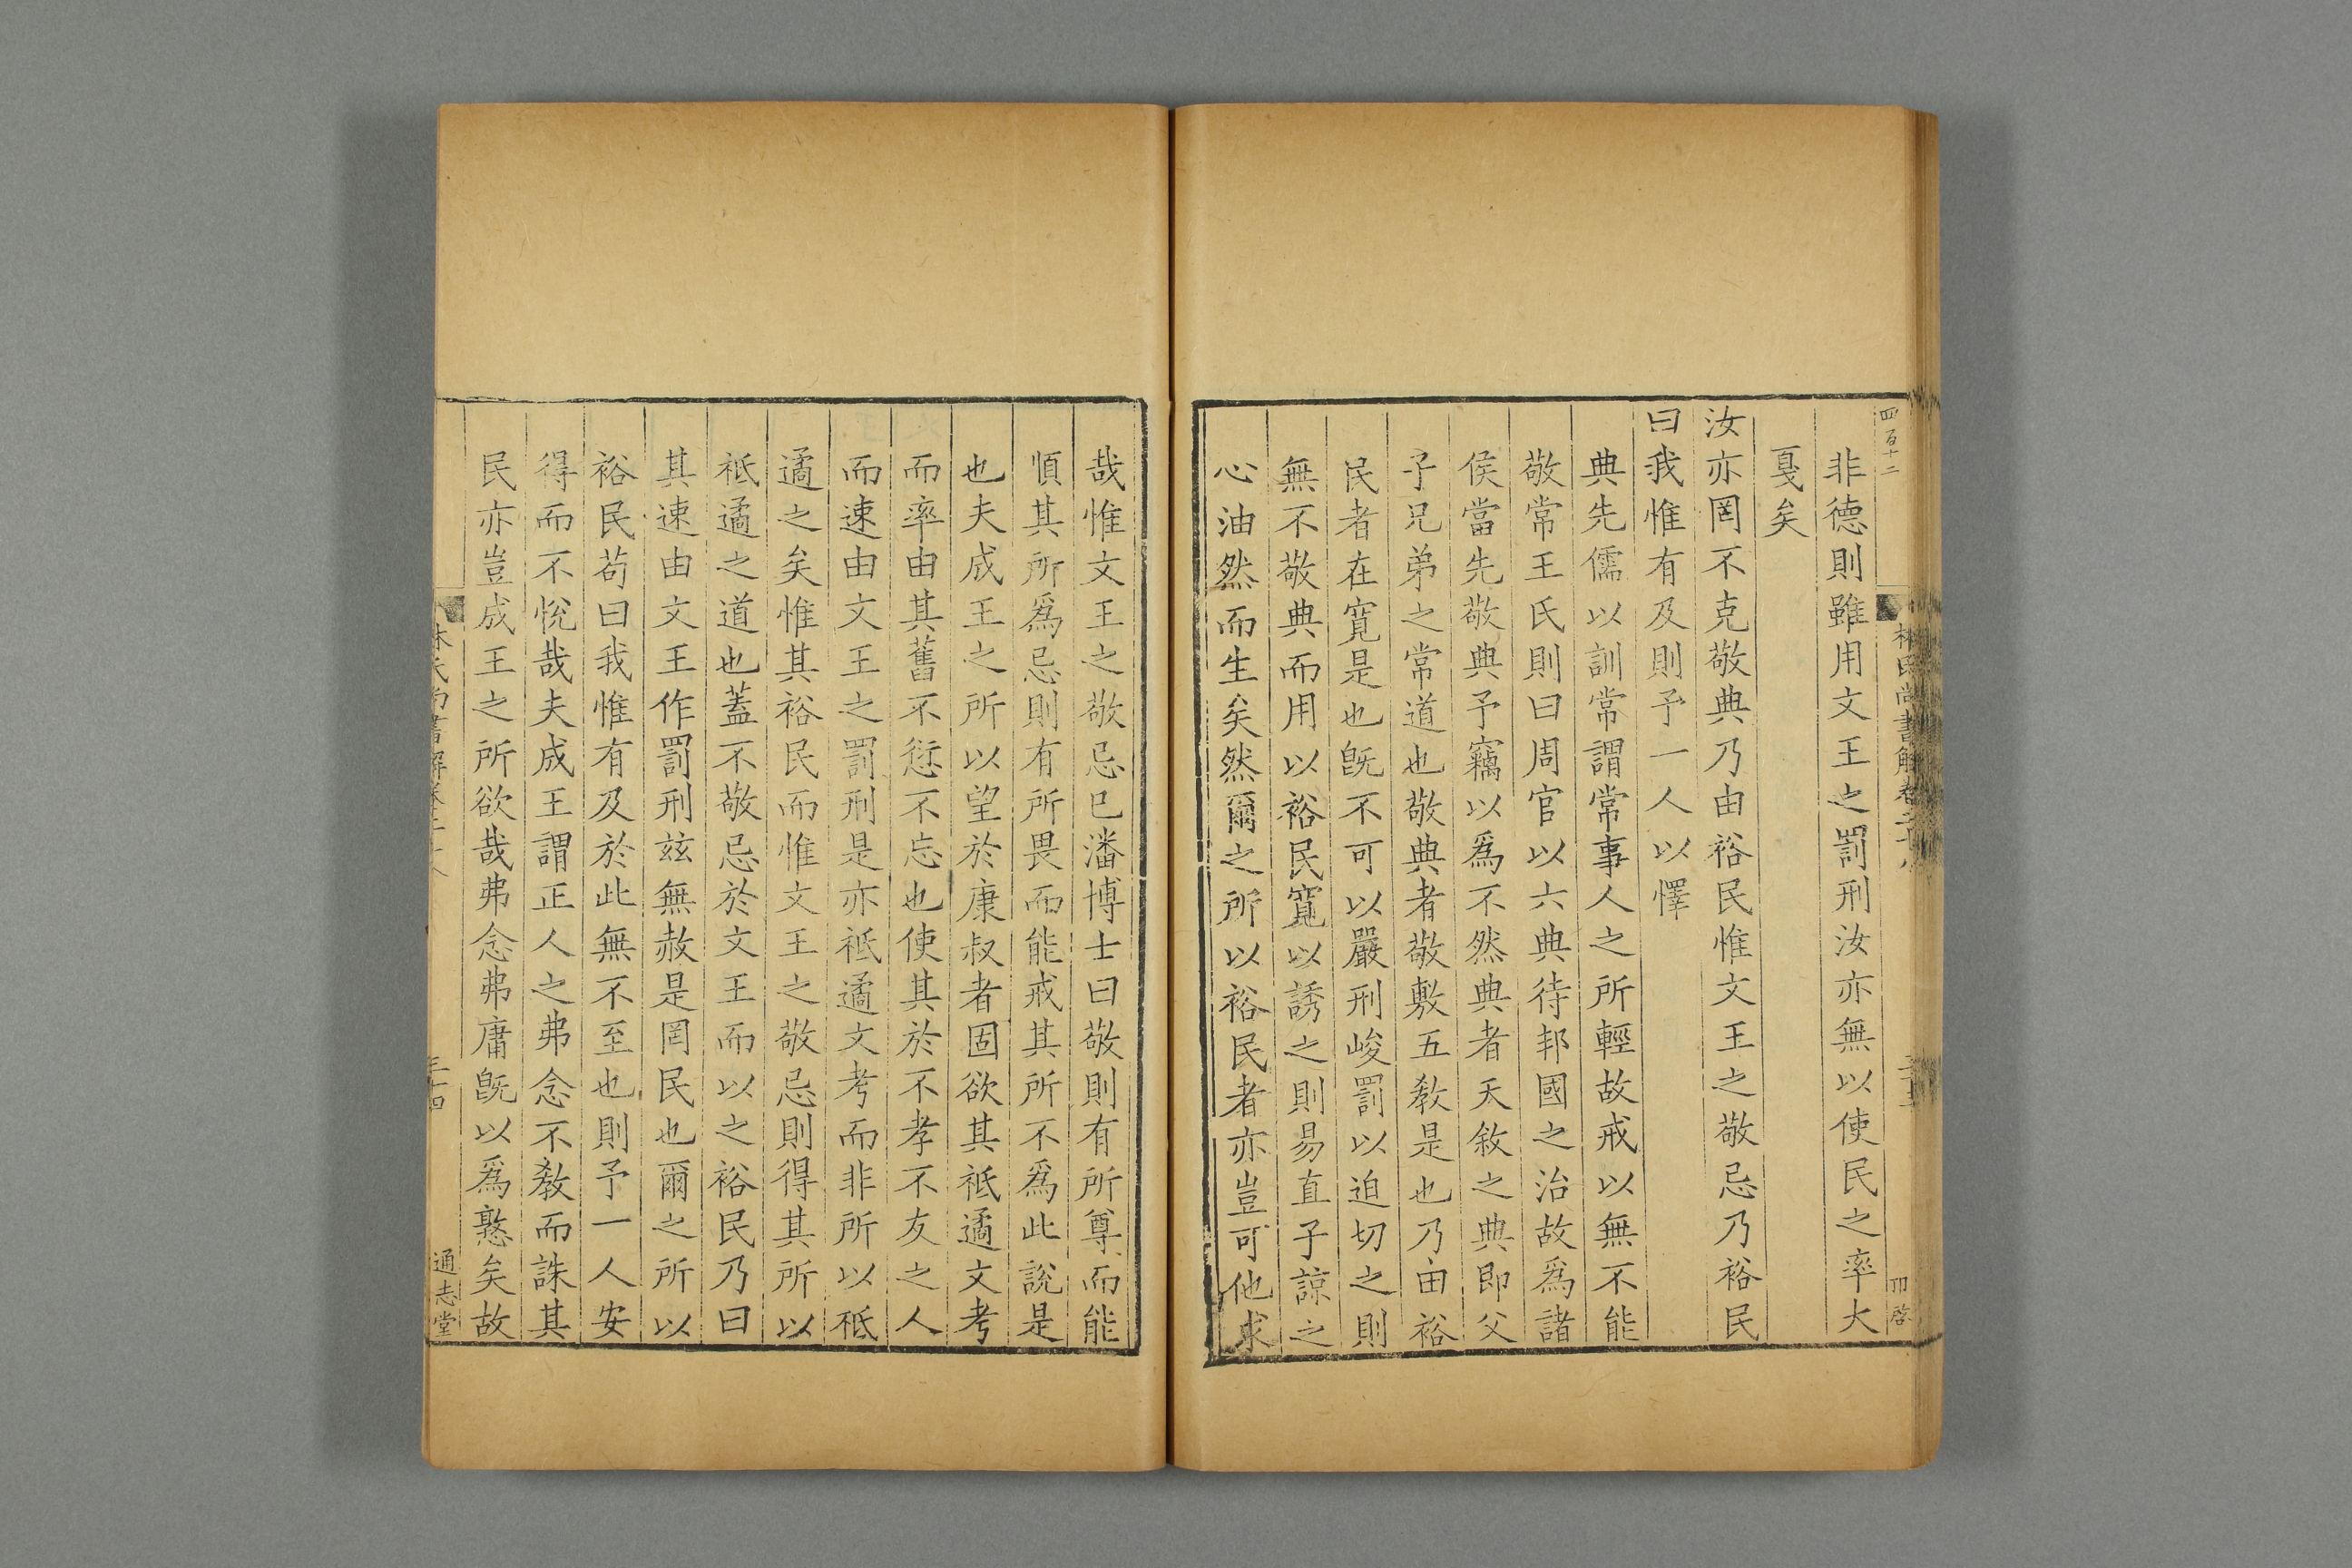 四百十二
林氏尚書解卷二十八
非德則雖用文王之罰刑汝亦無以使民之率大
戛矣
汝亦罔不克敬典乃由裕民惟文王之敬忌乃裕民
曰我惟有及則予一人以懌
典先儒以訓常謂常事人之所輕故戒以無不能
敬常王氏則曰周官以六典待邦國之治故爲諸
侯當先敬典予竊以爲不然典者天敘之典即父
子兄弟之常道也敬典者敬敷五敎是也乃由裕
民者在寬是也旣不可以嚴刑峻罰以迫切之則
無不敬典而用以裕民寬以誘之則易直子諒之
心油然而生矣然爾之所以裕民者亦豈可他求
哉惟文王之敬忌已潘博士曰敬則有所尊而能
順其所爲忌則有所畏而能戒其所不爲此說是
也夫成王之所以望於康叔者固欲其祗遹文考
而率由其舊不愆不忘也使其於不孝不友之人
而速由文王之罰刑是亦祗遹文考而非所以祗
遹之矣惟其裕民而惟文王之敬忌則得其所以
祗遹之道也蓋不敬忌於文王而以之裕民乃曰
其速由文王作罰刑茲無赦是罔民也爾之所以
裕民苟曰我惟有及於此無不至也則予一人安
得而不悅哉夫成王謂正人之弗念不敎而誅其
民亦豈成王之所欲哉弗念弗庸旣以爲憝矣故
林氏尚書解卷二十八
三十四
通志堂